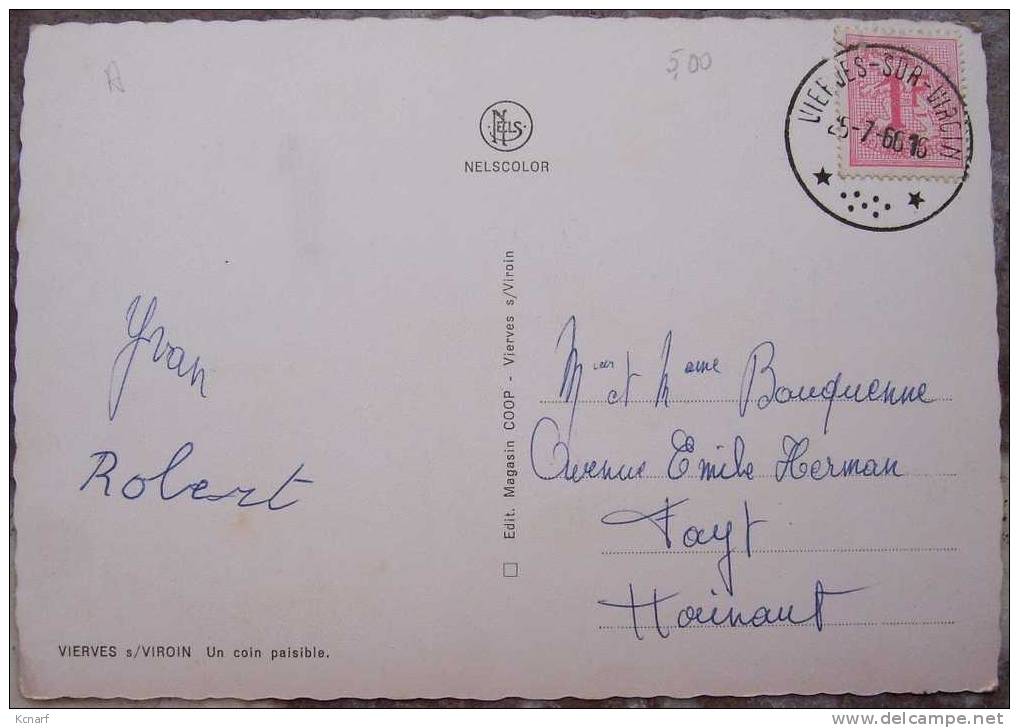 A
5,00
NELS
NELSCOLOR
VIERVES-SUR-VIROIN
25-7-66 16
1F
Yvan
Robert
Edit. Magasin COOP - Vierves s/Viroin
Mieur et Mame Bouquenne
Avenue Emile Herman
Fayt
Hainaut
VIERVES s/VIROIN Un coin paisible.
Kcnarf
www.delcampe.net